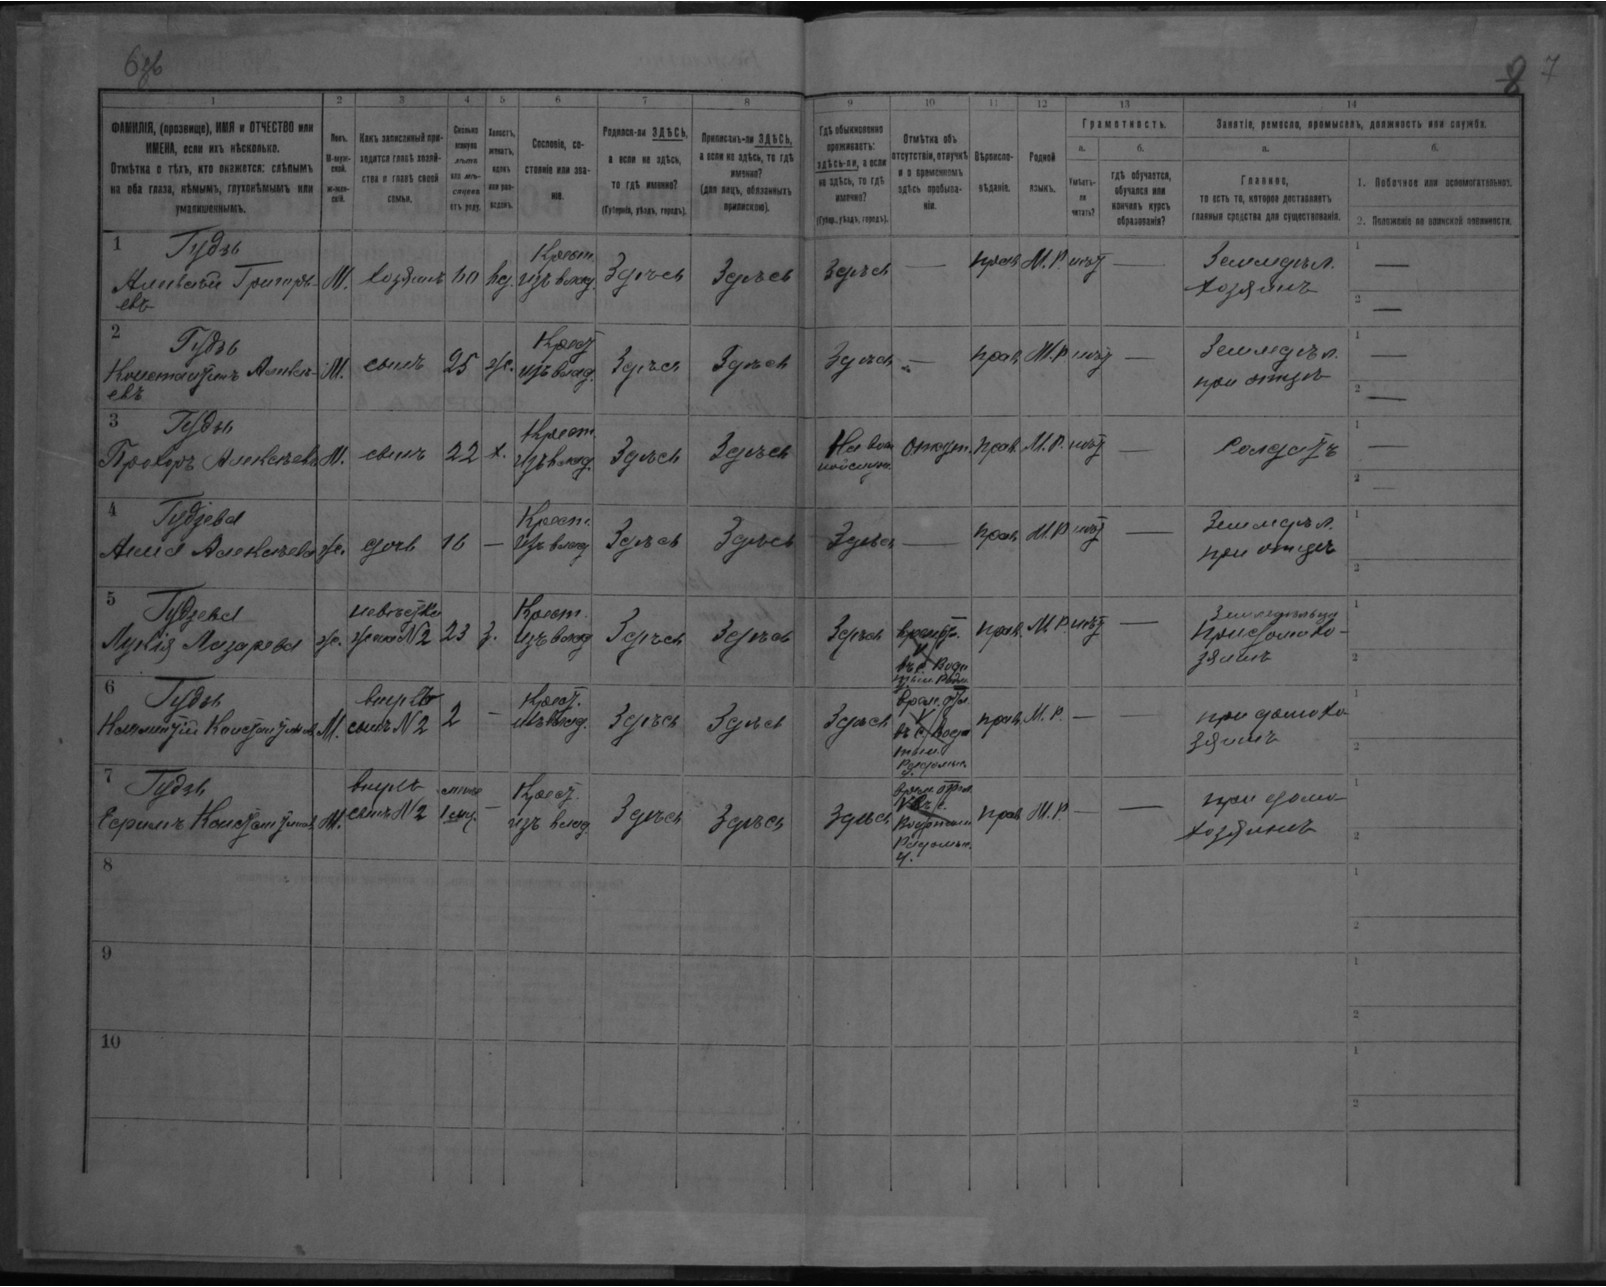 6об
8 7
1 2 3 4 5 6 7 8 9 10 11 12 13 14
ФАМИЛІЯ, (прозвище), ИМЯ и ОТЧЕСТВО или
ИМЕНА, если ихъ нѣсколько.
Отмѣтка о тѣхъ, кто окажется: слѣпымъ
на оба глаза, нѣмымъ, глухонѣмымъ или
умалишеннымъ.
Полъ.
М-муж-
ской.
ж-жен-
скій.
Какъ записанный при-
ходится главѣ хозяй-
ства и главѣ своей
семьи.
Сколько
минуло
лѣтъ
или мѣ-
сяцевъ
отъ роду.
Холостъ,
женатъ,
вдовъ
или раз-
веденъ.
Сословіе, со-
стояніе или зва-
ніе.
Родился-ли ЗДѢСЬ,
а если не здѣсь,
то гдѣ именно?
(Губернія, уѣздъ, городъ).
Приписанъ-ли ЗДѢСЬ,
а если не здѣсь, то гдѣ
именно?
(для лицъ, обязанныхъ
припискою).
Гдѣ обыкновенно
проживаетъ:
здѣсь-ли, а если
не здѣсь, то гдѣ
именно?
(Губер., уѣздъ, городъ).
Отмѣтка объ
отсутствіи, отлучкѣ
и о временномъ
здѣсь пребыва-
ніи.
Вѣроиспо-
вѣданіе.
Родной
языкъ.
Грамотность.
а.
Умѣетъ-
ли
читать?
б.
гдѣ обучается,
обучался или
кончилъ курсъ
образованія?
Занятіе, ремесло, промыселъ, должность или служба.
а.
Главное,
то есть то, которое доставляетъ
главныя средства для существованія.
б.
1. Побочное или вспомогательное.
2. Положеніе по воинской повинности.
1 Гудзь
Алексѣй Григорь-
евъ
М. хозяинъ вд. Крест. изъ влад. Здѣсь Здѣсь Здѣсь — прав. М.Р. нѣт — Земледѣл. хозяинъ
1 —
2 —
2 Гудзь
Константинъ Алексѣ-
евъ
М. сынъ 25 ж. Крест изъ влад. Здѣсь Здѣсь Здѣсь — прав. М.Р. нѣт — Земледѣл. при отцѣ
1 —
2 —
3 Гудзь
Прохоръ Алексѣевъ М. сынъ 22 х. Крест. изъ влад. Здѣсь Здѣсь На во- отсут. прав. М.Р. нѣт — Солдатъ
1 —
2 —
4 Гудзева
Анна Алексѣева ж. дочь 16 — Крест. изъ влад Здѣсь Здѣсь Здѣсь — прав. М.Р. нѣт — Земледѣл. при отцѣ
1
2
5 Гудзева
Лукія Лазарева ж. невѣстка жена №2 23 з. Крест. изъ влад Здѣсь Здѣсь Здѣсь прав. М.Р. нѣт — при домохо-
зяинѣ
1
2
6 Гудзь
М. внукъ сынъ №2 2 — Крест. изъ влад. Здѣсь Здѣсь Здѣсь прав. М.Р. — — при домохо
зяинѣ
1
2
7 Гудзь
Ефимъ Константиновъ М. внукъ сынъ №2 — Крест. изъ влад Здѣсь Здѣсь Здѣсь прав. М.Р. — — при домо-
хозяинѣ
1
2
8
1
2
9
1
2
10
1
2